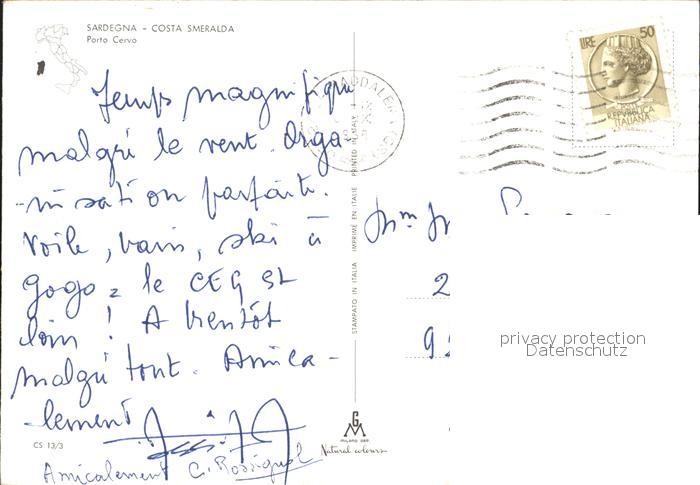 SARDEGNA - COSTA SMERALDA
Porto Cervo
Temps magnifique
malgré le vent. Orga-
-nisation parfaite.
Voile, bain, ski à
gogo, le CEG est
loin ! A bientôt
malgré tout. Amica-
lement
Amicalement C. Rossignol
CS 13/3
STAMPATO IN ITALIA IMPRIMÉ EN ITALIE PRINTED IN ITALY
MILANO
Natural colours
LIRE 50
REPUBBLICA
ITALIANA
2
privacy protection
Datenschutz